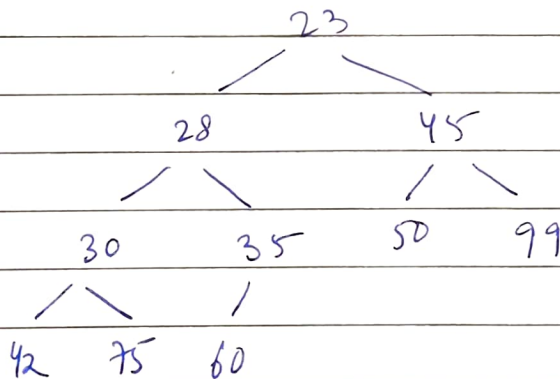 23
28 45
30 35 50 99
42 75 60